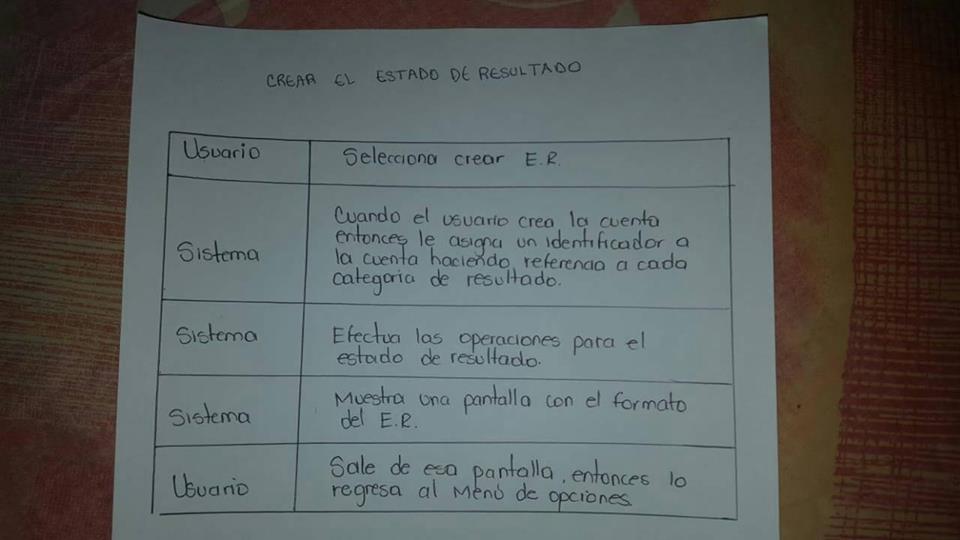 CREAR EL ESTADO DE RESULTADO
Usuario
Selecciona crear E.R.
Sistema
Cuando el usuario crea la cuenta
entonces le asigna un identificador a
la cuenta haciendo referencia a cada
categoria de resultado.
Sistema
Efectua las operaciones para el
estado de resultado.
Sistema
Muestra una pantalla con el formato
del E.R.
Usuario
Sale de esa pantalla, entonces lo
regresa al Menú de opciones